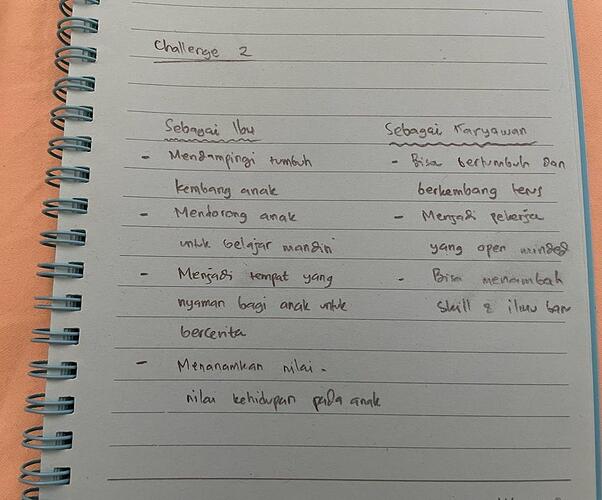 Challenge 2
Sebagai Ibu
- Mendampingi tumbuh
kembang anak
- Mendorong anak
untuk belajar mandiri
- Menjadi tempat yang
nyaman bagi anak untuk
bercerita
- Menanamkan nilai-
nilai kehidupan pada anak
Sebagai Karyawan
- Bisa bertumbuh dan
berkembang terus
- Menjadi pekerja
yang open minded
- Bisa menambah
skill & ilmu baru